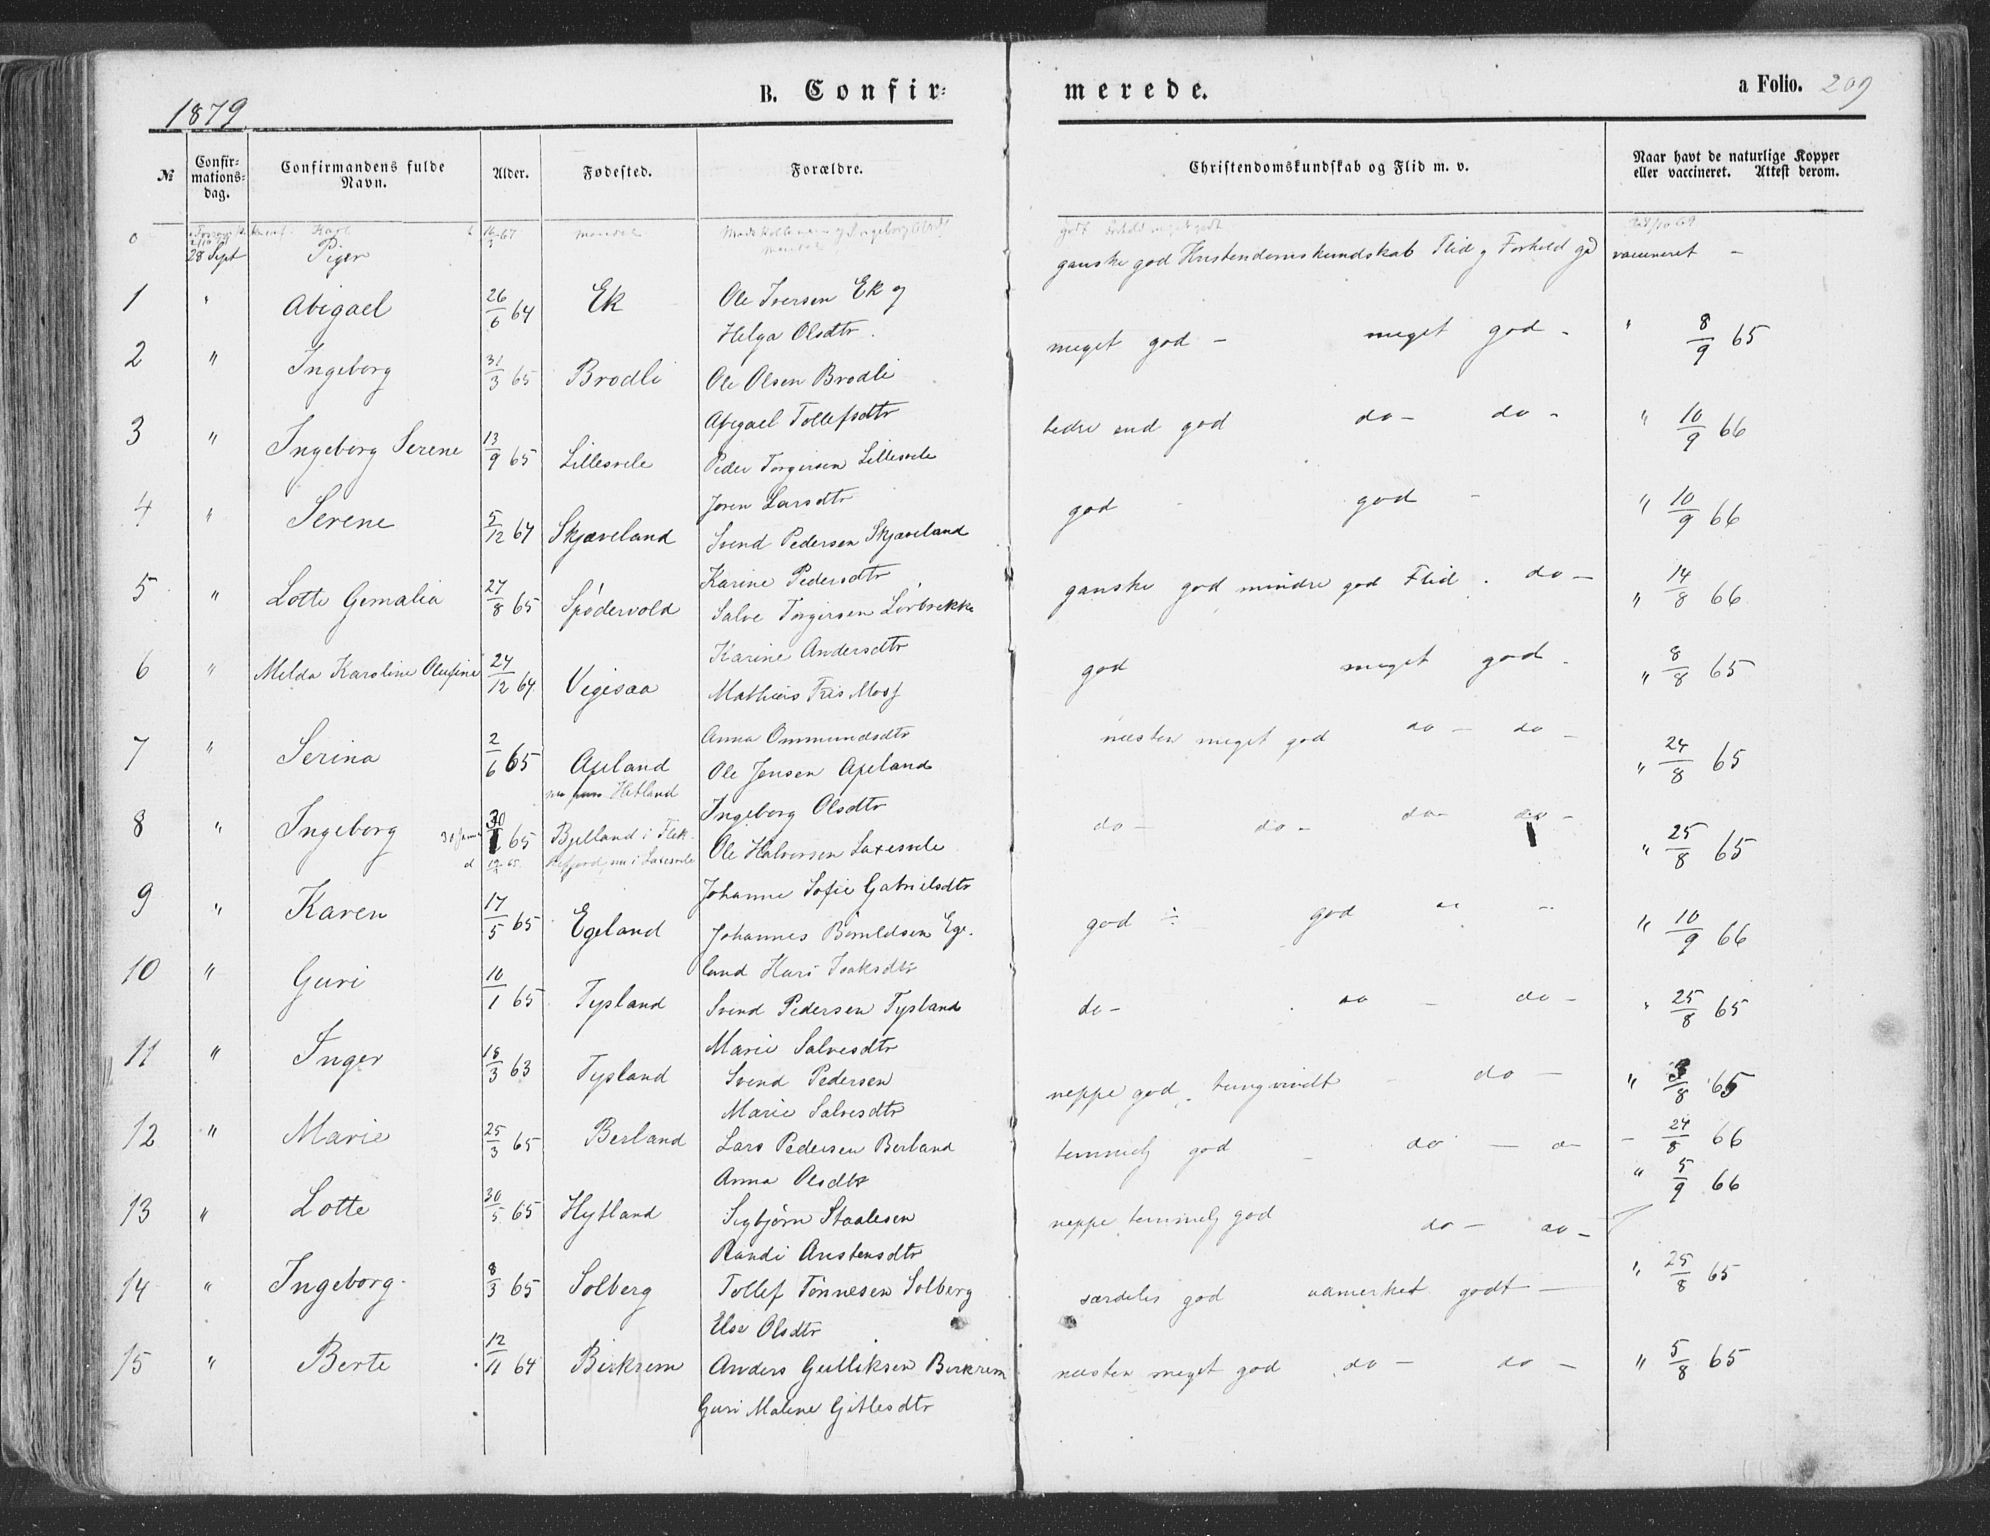 1879
B. Confir- merede. a Folio. 209
№ Confir-mations-dag. Confirmandens fulde Navn. Alder. Fødested. Forældre. Christendomskundskab og Flid m. v. Naar havt de naturlige Kopper eller vaccineret. Attest derom.
28 Sept Piger ganske god Kristendomskundskab Flid og Forhold gd vaccineret -
1 " Abigael 26/6 64 Ek Ole Iversen Ek og
Helga Olsdtr. meget god - meget god - " 8/9 65
2 " Ingeborg 31/3 65 Brodli Ole Olsen Brodli
Abigael Tollefsdtr bedre end god do - do - " 10/9 66
3 " Ingeborg Serene 13/9 65 Lillesvele Peder Torgersen Lillesvele
Joren Larsdtr god - god - " 10/9 66
4 " Serene 5/12 64 Skjæveland Svend Pedersen Skjæveland
Karine Pedersdtr ganske god, mindre god Flid. do - " 14/8 66
5 " Lotte Gemalia 27/8 65 Spødervold Salve Torgersen Lørbrekke
Karine Andersdtr god meget god. " 8/8 65
6 " Melda Karoline Olufine 24/12 64 Vigesaa Mathias Fris
Anna Ommundsdtr næsten meget god do - do - " 24/8 65
7 " Serina 2/6 65 Apeland Ole Jensen Apeland
nu Hetland
Ingeborg Olsdtr do - do - do - do - " 25/8 65
8 " Ingeborg 30/1 65 Bjelland i Flek-
kefjord, nu i Laxesvele Ole Halvorsen Laxesvele
Johanne Sofie Gabrielsdtr god ÷ god " - " 10/9 66
9 " Karen 17/5 65 Egeland Johannes Ege-
land Isaksdtr do - do - do - " 25/8 65
10 " Guri 10/1 65 Tysland Svend Pedersen Tysland
Marie Salvesdtr
11 " Inger 18/3 63 Tysland Svend Pedersen
Marie Salvesdtr neppe god, tungvindt - do - " 3/8 65
12 " Marie 25/3 65 Berland Lars Pedersen Berland
Anna Olsdtr temmelig god - do - - 24/8 66
" 5/9 66
13 " Lotte 30/5 65 Hytland Sigbjørn Staalesen
Randi Aristensdtr neppe temmelig god do - do -
14 " Ingeborg. 8/3 65 Solberg Tollef Tønnesen Solberg
Else Olsdtr særdeles god udmerket godt - " 25/8 65
15 " Berte 12/11 64 Birkrem Anders Gulliksen Birkrem
Guri Malene Gitlesdtr næsten meget god do - do - " 5/8 65